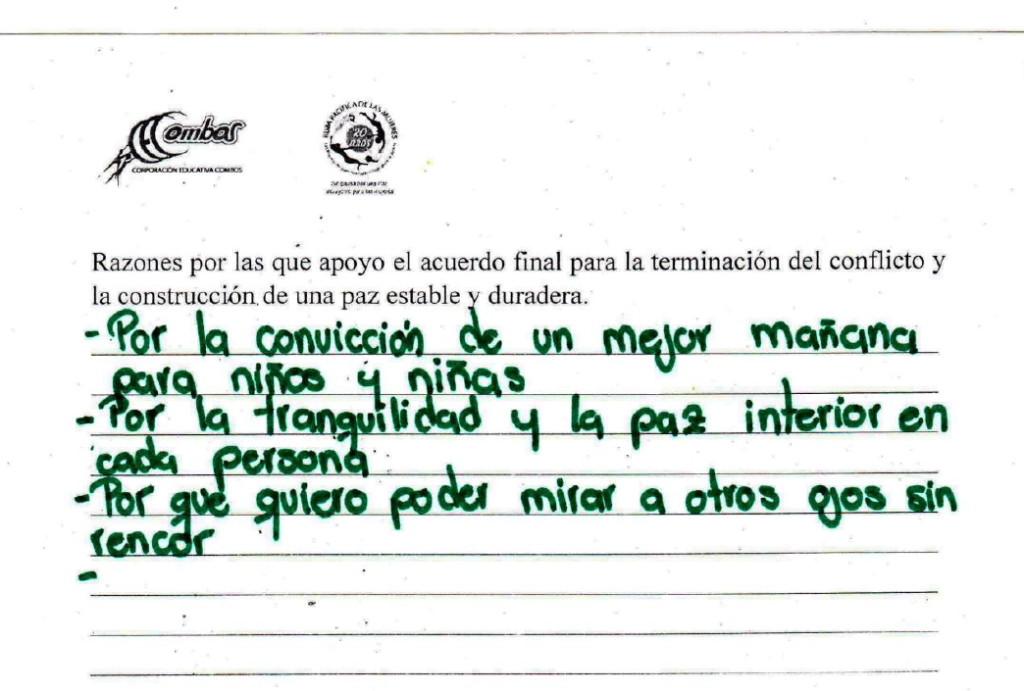 Combos
CORPORACIÓN EDUCATIVA COMBOS
RUTA PACIFICA DE LAS MUJERES
20
AÑOS
Razones por las que apoyo el acuerdo final para la terminación del conflicto y
la construcción de una paz estable y duradera.
- Por la convicción de un mejor mañana
para niños y niñas
- Por la tranquilidad y la paz interior en
cada persona
- Por que quiero poder mirar a otros ojos sin
rencor
-